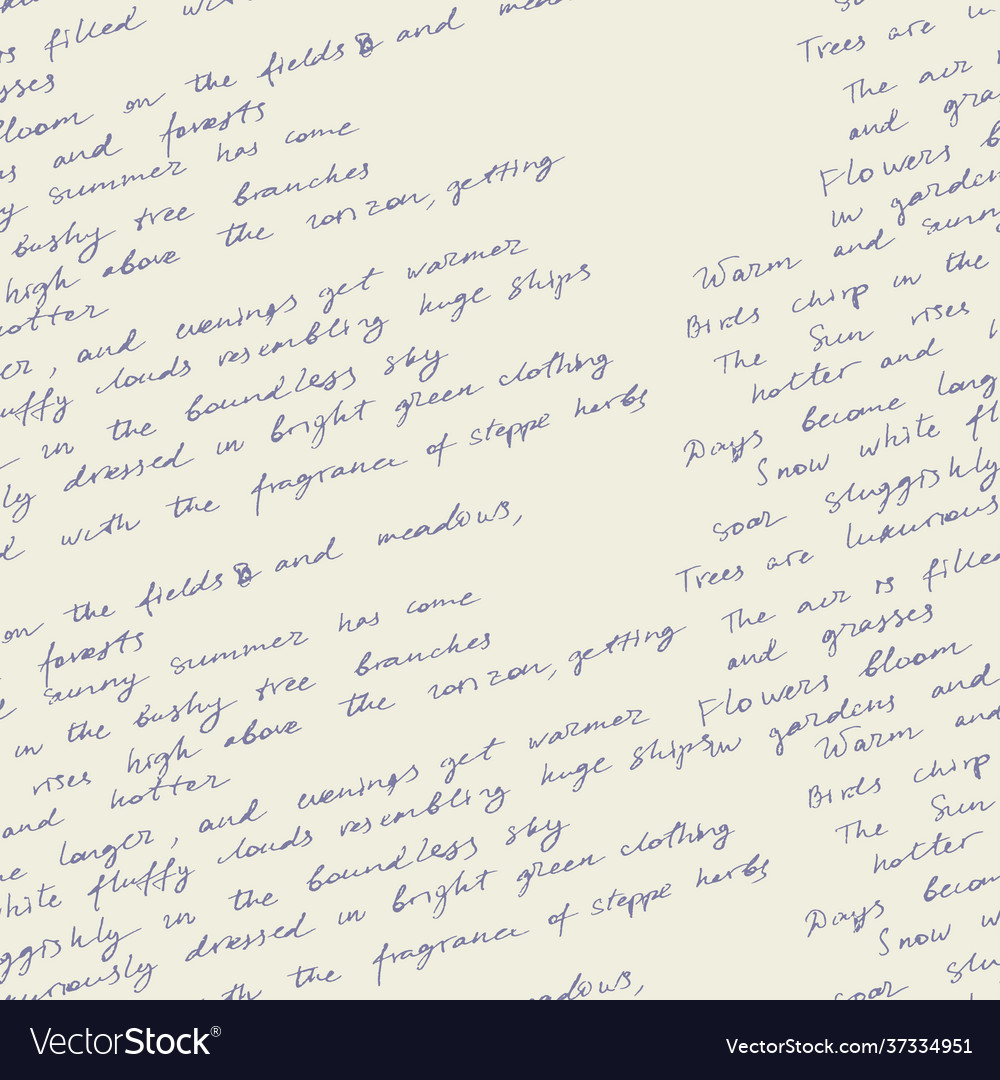 filled
sses
loom on the fields and mea
and forests
y summer has come
bushy tree branches
high above the horizon, getting
otter
er, and evenings get warmer
uffy clouds resembling huge ships
in the boundless sky
ly dressed in bright green clothing
d with the fragrance of steppe herbs
on the fields and meadows,
forests
sunny summer has come
in the bushy tree branches
rises high above the horizon, getting
and hotter
e longer, and evenings get warmer
hite fluffy clouds resembling huge ships
ggishly in the boundless sky
uriously dressed in bright green clothing
th the fragrance of steppe herbs
adows,
Trees are
The air
and gra
Flowers b
in garden
Warm and sunny
Birds chirp in the
The Sun rises
hotter and
Days become long
Snow white fl
soar sluggishly
Trees are luxurious
The air is filled
and grasses
Flowers bloom
in gardens and
Warm and
Birds chirp
The Sun
hotter
Days becom
Snow w
soar slu
VectorStock®
VectorStock.com/37334951